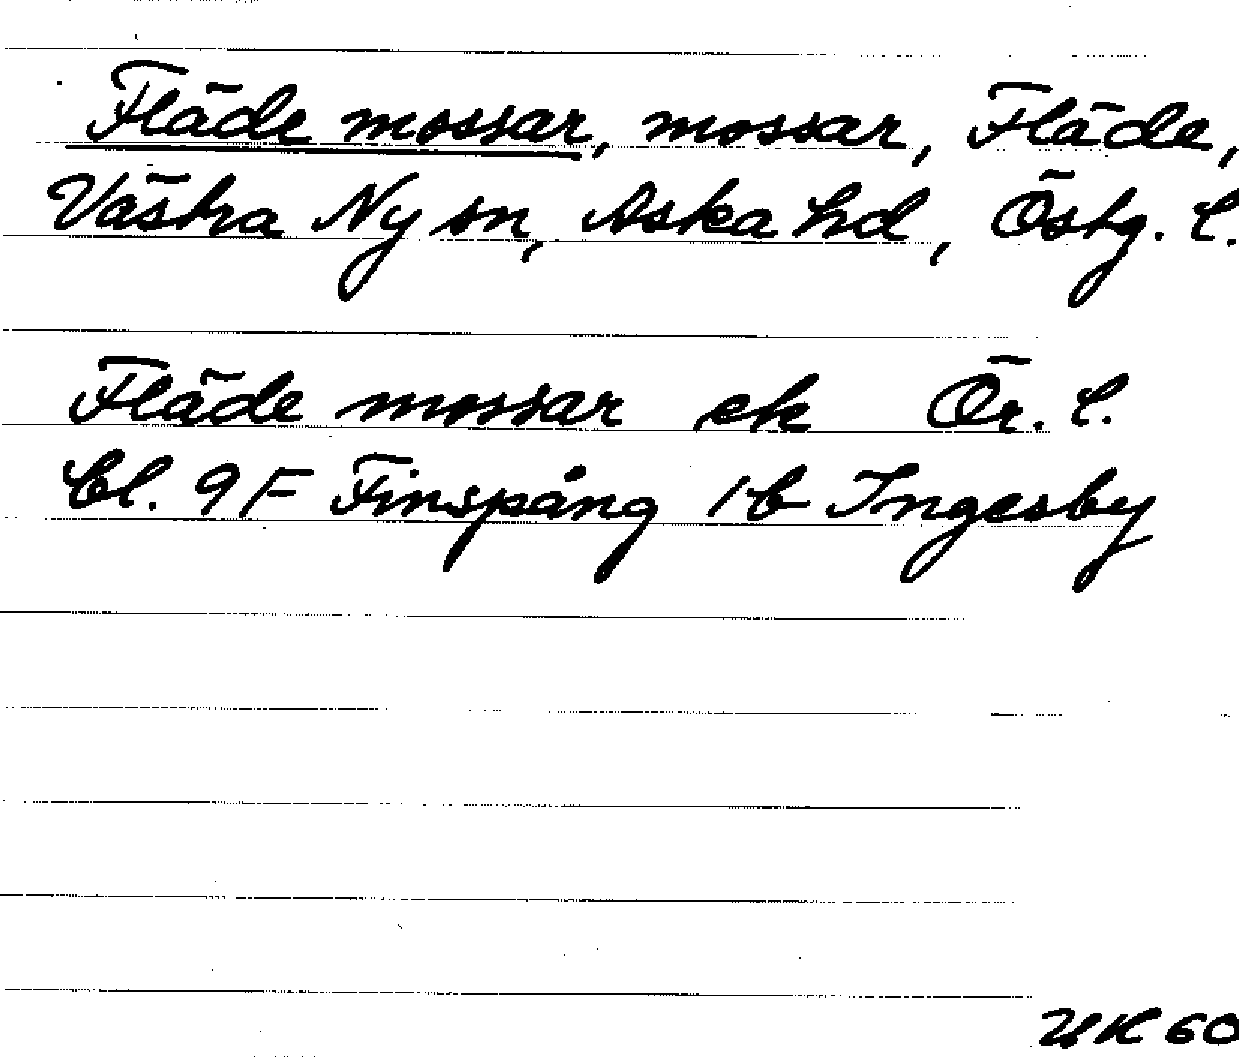 Fläde mossar, mossar, Fläde,
Västra Ny sn, Aska hd, Östg. l.
Fläde mossar ek Ör. l.
Bl. 9F Finspång 1b Ingesby
UK 60